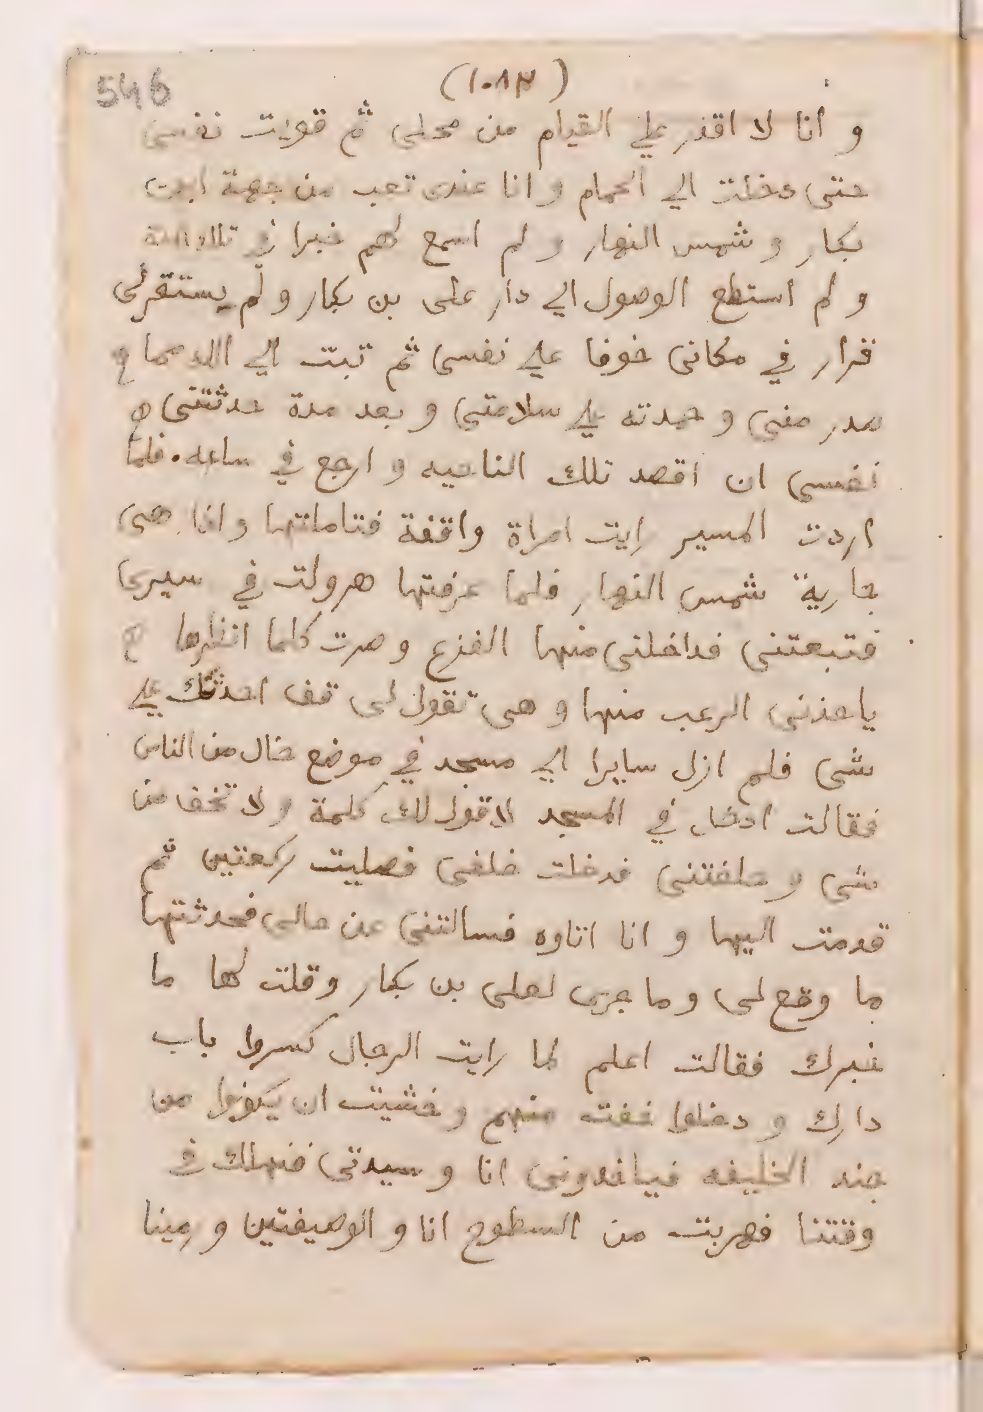 546
(١٠٨٣)
و انا لا اقدر على القيام من محلى ثم قويت نفسى
حتى دخلت الي الحمام و انا عندى تعب من جهة ابن
بكار و شمس النهار و لم اسمع لهم خبرا في تلك
و لم استطع الوصول الي دار على بن بكار و لم يستقر لى
قرار في مكانى خوفا علي نفسى ثم تبت الي الله مما
صدر منى و حمدته علي سلامتى و بعد مدة حدثتنى
نفسى ان اقصد تلك الناحيه و ارجع في ساعه. فلما
اردت المسير رايت امراة واقفة فتاملتها و اذا هى
جارية شمس النهار فلما عرفتها هرولت في سيرى
فتبعتنى فداخلنى منها الفزع و صرت كلما انظرها
ياخذنى الرعب منها و هى تقول لى قف احدثك علي
شى فلم ازل سايرا الي مسجد في موضع خال من الناس
فقالت ادخل في المسجد لاقول لك كلمة و لا تخف من
شى و حلفتنى فدخلت خلفى فصليت ركعتين ثم
قدمت اليها و انا اتاوه فسالتنى عن حالى فحدثتها
ما وقع لى و ما جرى لعلى بن بكار و قلت لها ما
خبرك فقالت اعلم لما رايت الرجال كسروا باب
دارك و دخلوا خفت منهم و خشيت ان يكونوا من
جند الخليفه فياخدونى انا و سيدتى فنهلك في
وقتنا فهربت من السطوح انا و الوصيفتين و رمينا